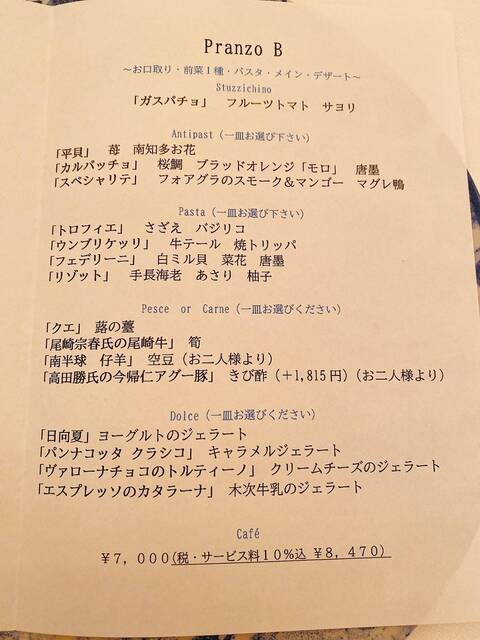 Pranzo B
～お口取り・前菜１種・パスタ・メイン・デザート～
Stuzzichino
「ガスパチョ」　フルーツトマト　サヨリ
Antipast（一皿お選び下さい）
「平貝」　苺　南知多お花
「カルパッチョ」　桜鯛　ブラッドオレンジ「モロ」　唐墨
「スペシャリテ」　フォアグラのスモーク＆マンゴー　マグレ鴨
Pasta（一皿お選び下さい）
「トロフィエ」　さざえ　バジリコ
「ウンブリケッリ」　牛テール　焼トリッパ
「フェデリーニ」　白ミル貝　菜花　唐墨
「リゾット」　手長海老　あさり　柚子
Pesce or Carne（一皿お選びください）
「クエ」蕗の薹
「尾崎宗春氏の尾崎牛」　筍
「南半球　仔羊」　空豆（お二人様より）
「高田勝氏の今帰仁アグー豚」　きび酢（＋1,815円）（お二人様より）
Dolce（一皿お選びください）
「日向夏」ヨーグルトのジェラート
「パンナコッタ クラシコ」　キャラメルジェラート
「ヴァローナチョコのトルティーノ」　クリームチーズのジェラート
「エスプレッソのカタラーナ」　木次牛乳のジェラート
Café
￥７，０００（税・サービス料１０％込 ￥８，４７０）